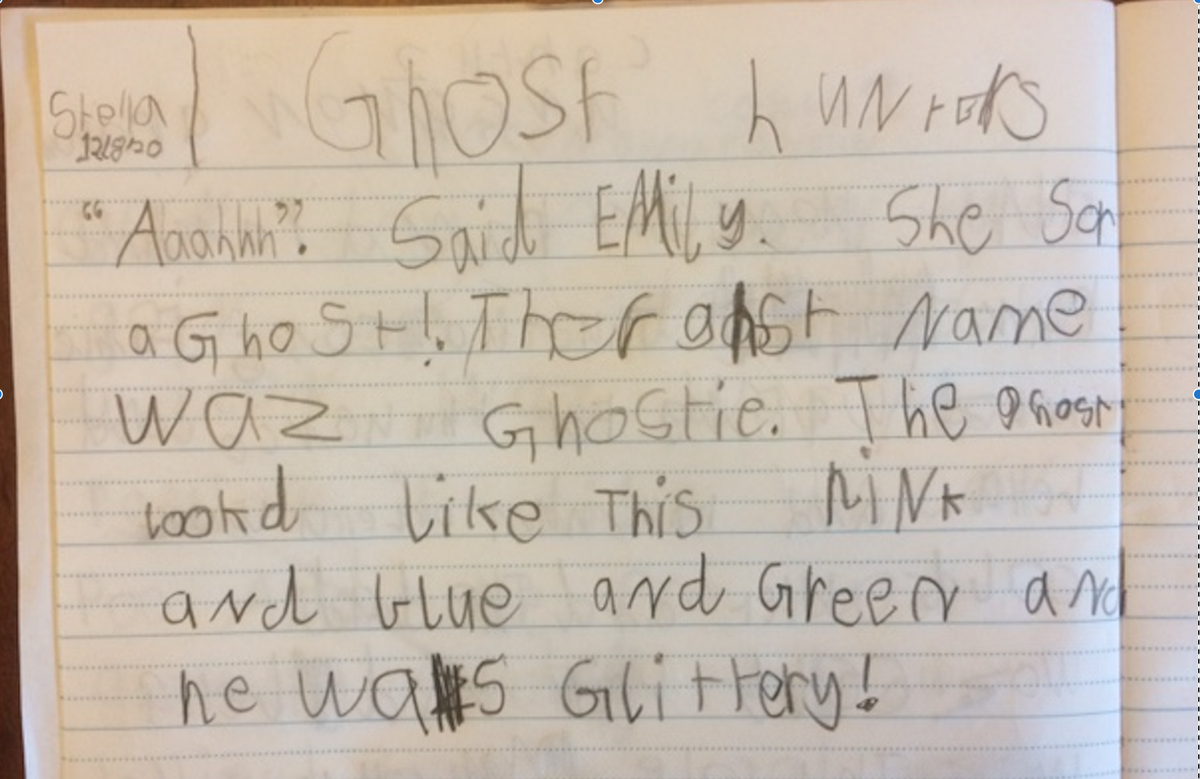 Stella
12/8/20
Ghost huntors
"Aaahhh". Said EMily. She Sor
a GhoSt! The Gost Name
waz Ghostie. The Ghost
lookd like This PiNk
and blue and Green and
he was Glittery!